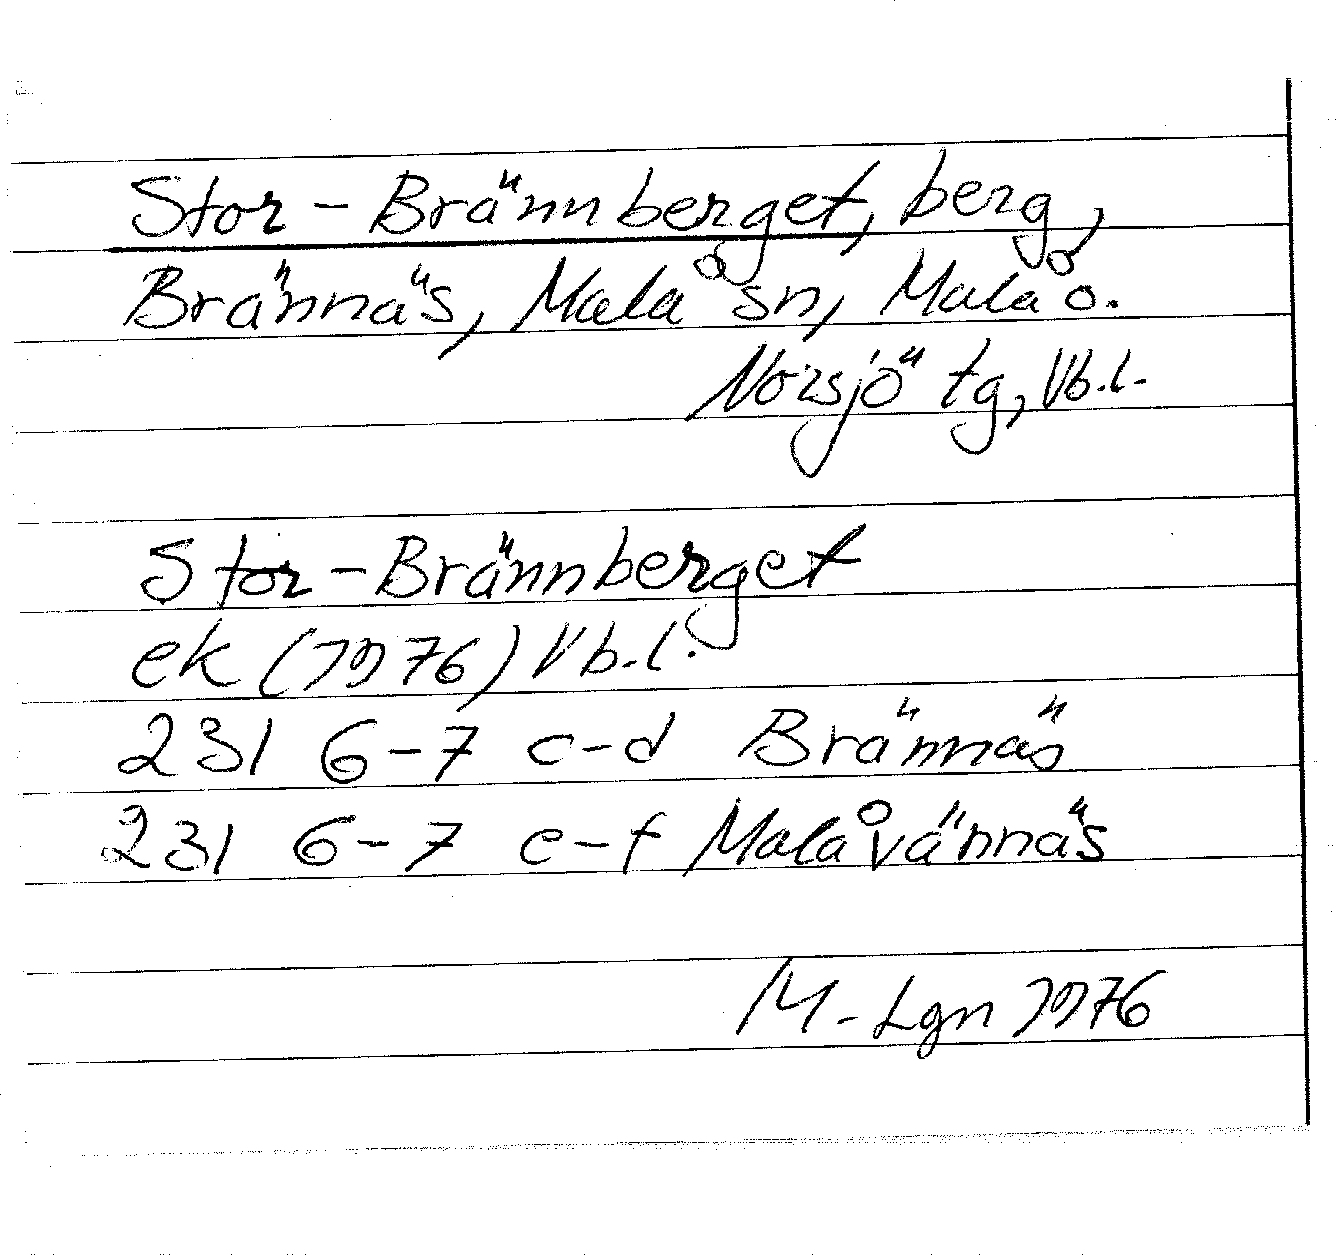 Stor-Brännberget, berg,
Brännäs, Malå sn, Malå o.
Norsjö tg, Vb.l.
Stor-Brännberget
ek (1976) Vb.l.
231 6-7 c-d Brännäs
231 6-7 e-f Malåvännäs
M-Lgn 1976